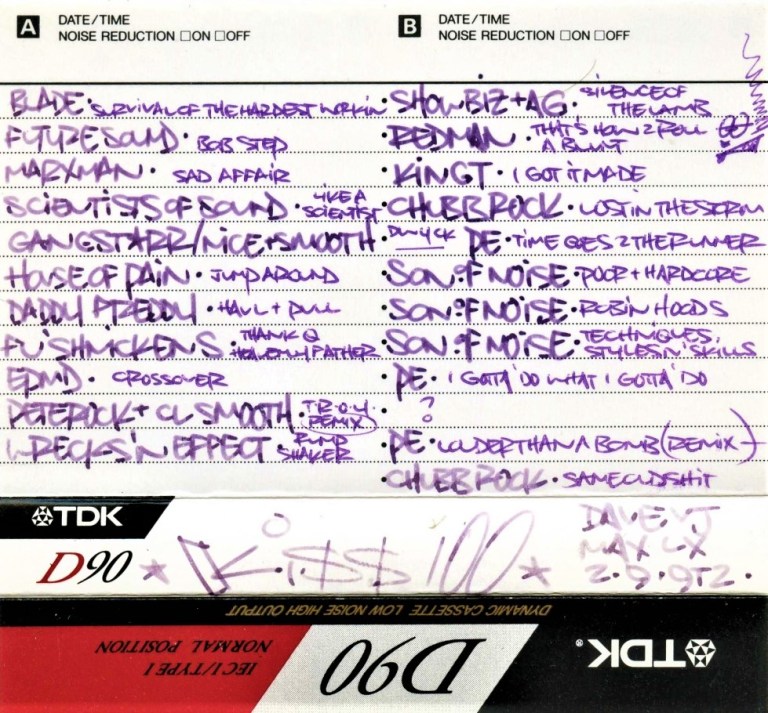 A DATE/TIME
NOISE REDUCTION □ON □OFF
BLADE · SURVIVAL OF THE HARDEST WORKIN
FUTURE SOUND · BOB STEP
MARXMAN · SAD AFFAIR
SCIENTISTS OF SOUND · LIKE A SCIENTIST
GANGSTARR/NICE+SMOOTH · DWYCK
HOUSE OF PAIN · JUMP AROUND
DADDY FREDDY · HAUL + PULL
FU SHNICKENS · THANK Q HEAVENLY FATHER
EPMD · CROSSOVER
PETE ROCK + CL SMOOTH · T·R·O·Y REMIX
WRECKS IN EFFECT · RUMP SHAKER
B DATE/TIME
NOISE REDUCTION □ON □OFF
· SHOWBIZ+AG · SILENCE OF THE LAMB
· REDMAN · THAT'S HOW 2 ROLL A BLUNT
· KING T · I GOT IT MADE
· CHUBB ROCK · LOST IN THE STORM
PE · TIME GOES 2 THE RUNNER
· SON OF NOISE · POOR + HARDCORE
· SON OF NOISE · ROBIN HOODS
· SON OF NOISE · TECHNIQUES, STYLES N' SKILLS
· PE · I GOTTA' DO WHAT I GOTTA' DO
· ?
· PE · LOUDER THAN A BOMB (REMIX)
· CHUBB ROCK · SAME OLD SHIT
TDK
D90
* KISS 100 *
DAVE VJ
MAX LX
2·9·92·
DYNAMIC CASSETTE LOW NOISE HIGH OUTPUT
TDK®
D90
IEC I/TYPE I
NORMAL POSITION